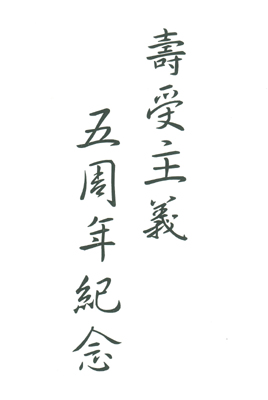 壽受主義
五周年紀念